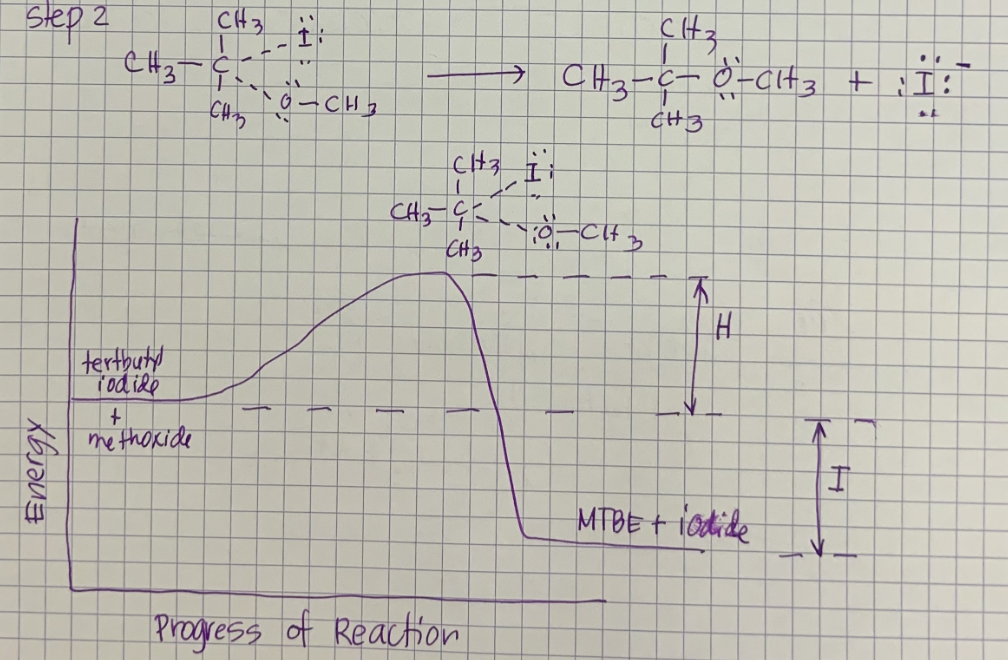 Step 2
CH3 I
CH3 – C → CH3 – C – O – CH3 + I⁻
CH3 O – CH3 CH3
CH3
CH3 I
CH3 – C
O – CH3
CH3
H
tertbutyl
iodide
+
methoxide
I
Energy
MTBE + iodide
Progress of Reaction